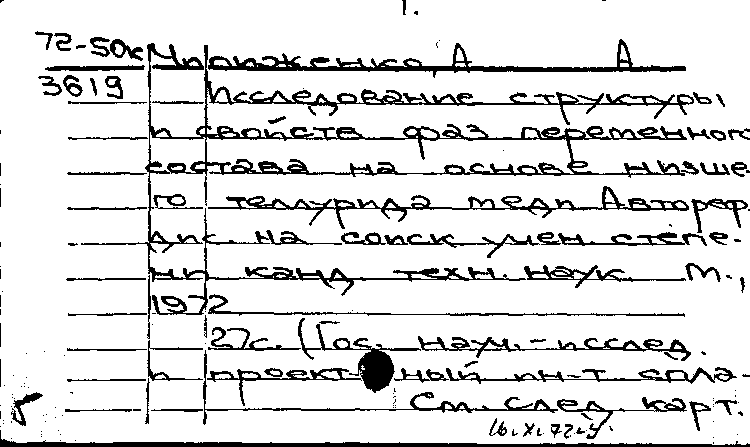 1.
72-50к Чириженко, А А
3619 Исследование структуры
и свойств фаз переменного
состава на основе низше-
го теллурида меди Автореф.
дис. на соиск учен. степе-
ни канд. техн. наук. М.,
1972
27с. (Гос. науч.-исслед.
и проектный ин-т спла-
См. след. карт.
16.XI.72г.